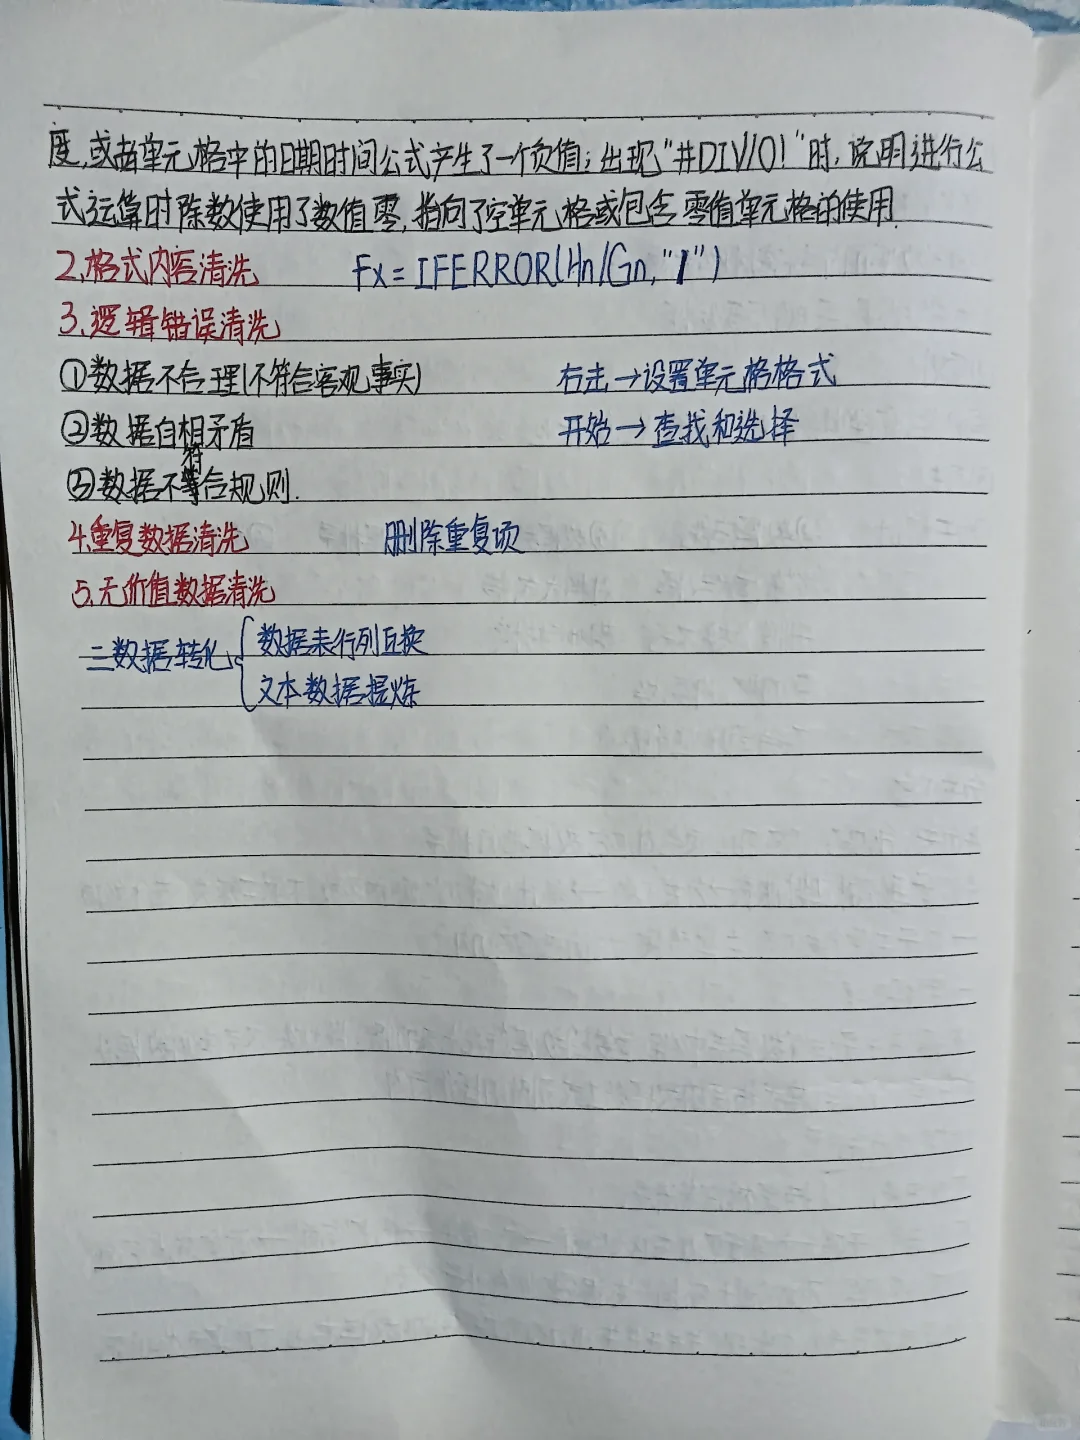 度,或者单元格中的日期时间公式产生了一个负值；出现"#DIV/0!"时,说明进行公
式运算时除数使用了数值零,指向了空单元格或包含零值单元格的使用.
2.格式内容清洗 Fx=IFERROR(Hn/Gn,"1")
3.逻辑错误清洗
①数据不合理(不符合客观事实) 右击→设置单元格格式
②数据自相矛盾 开始→查找和选择
③数据不符合规则.
4.重复数据清洗 删除重复项
5.无价值数据清洗
三数据转化 数据表行列互换
文本数据提炼